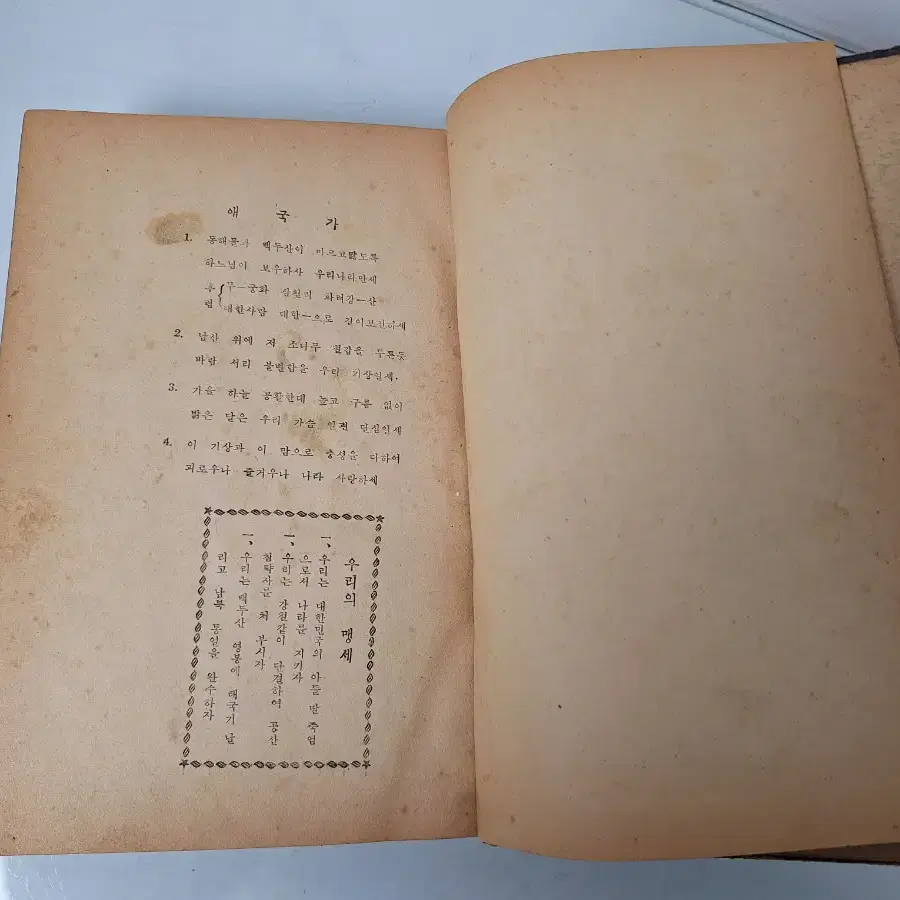 애 국 가
1. 동해물과 백두산이 마르고닳도록
하느님이 보우하사 우리나라만세
후렴 { 무ー궁화 삼천리 화려강ー산
대한사람 대한ー으로 길이보전하세
2. 남산 위에 저 소나무 철갑을 두른듯
바람 서리 불변함은 우리 기상일세.
3. 가을 하늘 공활한데 높고 구름 없이
밝은 달은 우리 가슴 일편 단심일세
4. 이 기상과 이 맘으로 충성을 다하여
괴로우나 즐거우나 나라 사랑하세
우리의 맹세
一、우리는 대한민국의 아들 딸 죽엄
으로서 나라를 지키자
一、우리는 강철같이 단결하여 공산
침략자를 처 부시자
一、우리는 백두산 영봉에 태국기 날
리고 남북 통일을 완수하자